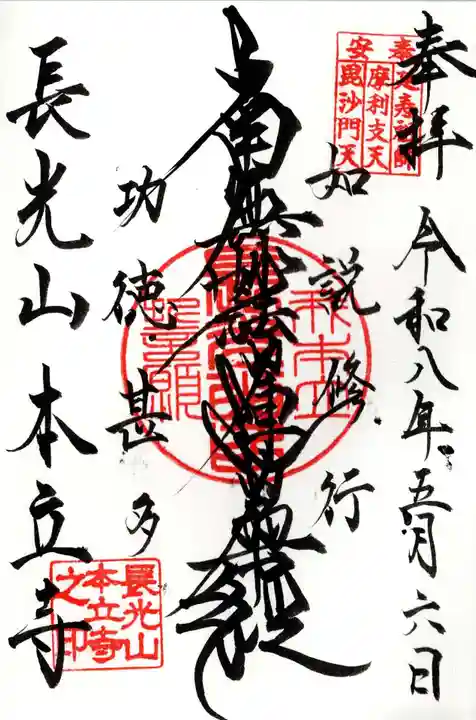 奉拝
令和八年五月六日
如説修行
南無妙法蓮華経
功徳甚多
長光山本立寺
安
毘沙門天
摩利支天
長光山
本立寺
之印